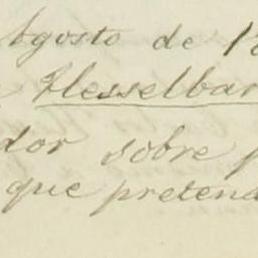 Agosto de 18
Hesselbar
dor sobre p
que pretend